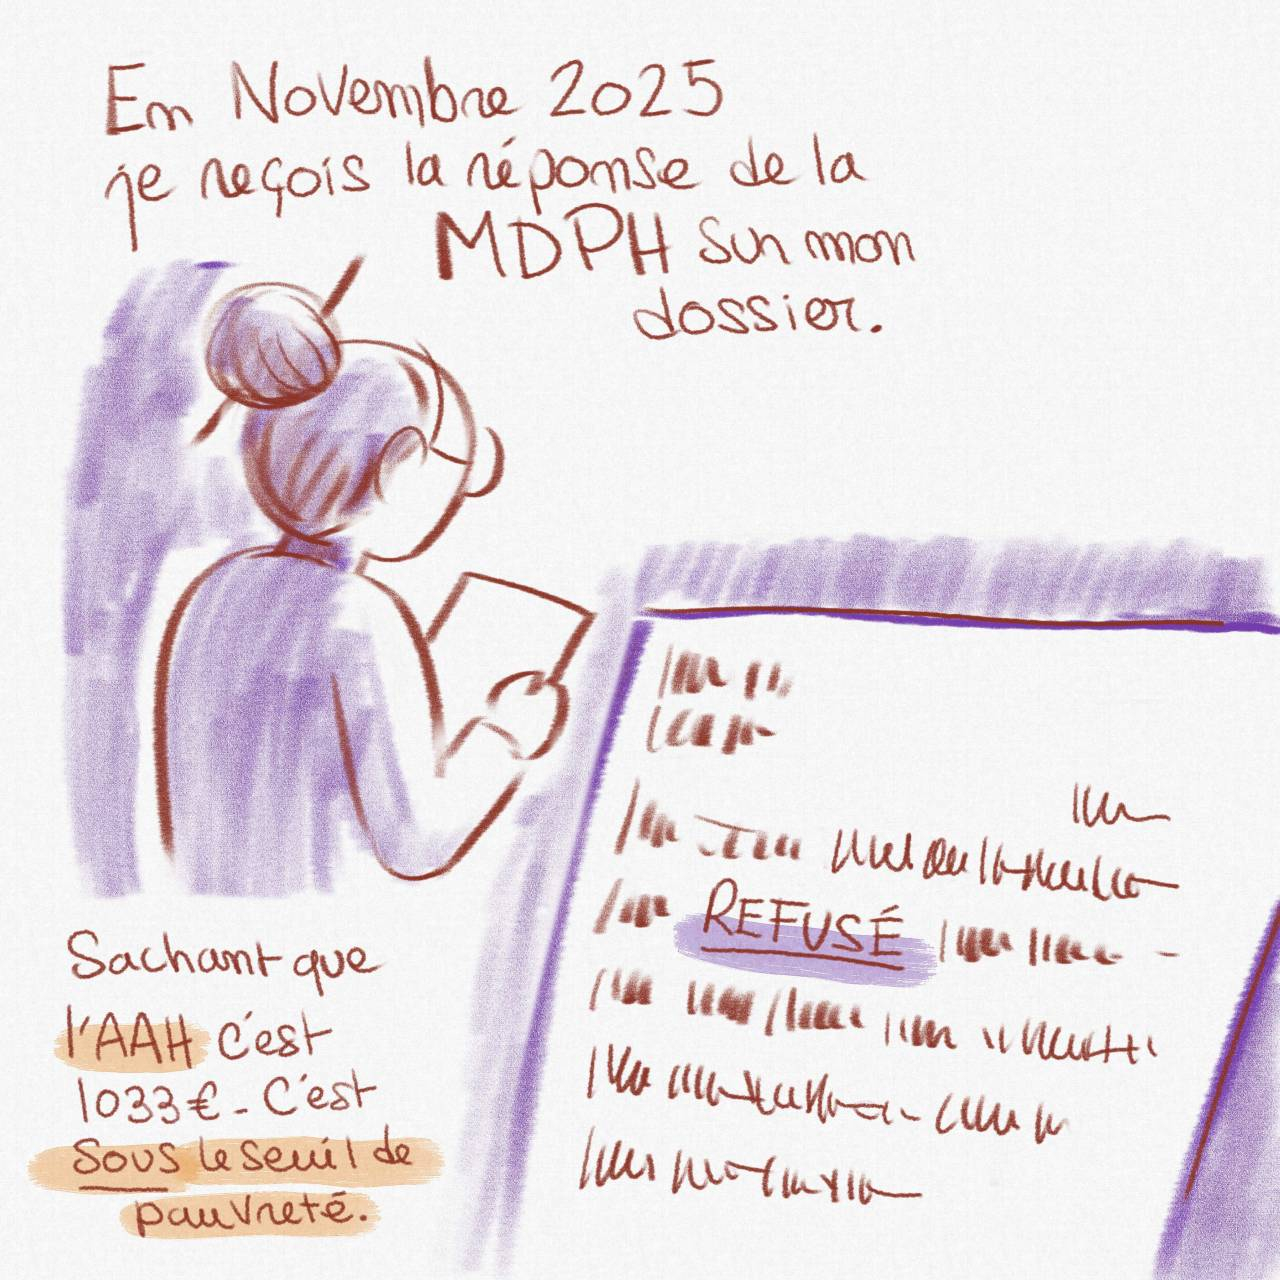 En Novembre 2025
je reçois la réponse de la
MDPH sur mon
dossier.
REFUSÉ
Sachant que
l'AAH c'est
1033€. C'est
sous le seuil de
pauvreté.